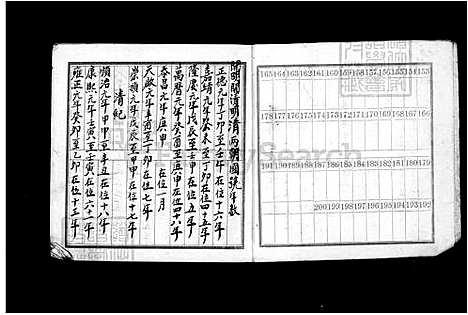 165 164 163 162 161 160 159 158 157 156 155 154 153
178 177 176 175 174 173 172 171 170 169 168 167 166
191 190 189 188 187 186 185 184 183 182 181 180 179
200 199 198 197 196 195 194 193 192
明清兩朝國號年數
正德元年丁卯在位十六年
嘉靖元年癸未至丁卯在位四十五年
隆慶元年在位六年
萬曆元年癸酉至庚申在位四十八年
泰昌元年庚申在位一月
天啟元年辛酉至丁卯在位七年
崇禎元年戊辰至甲申在位十七年
清紀
順治元年甲申至辛丑在位十八年
康熙元年壬寅至壬寅在位六十一年
雍正元年癸卯至乙卯在位十三年